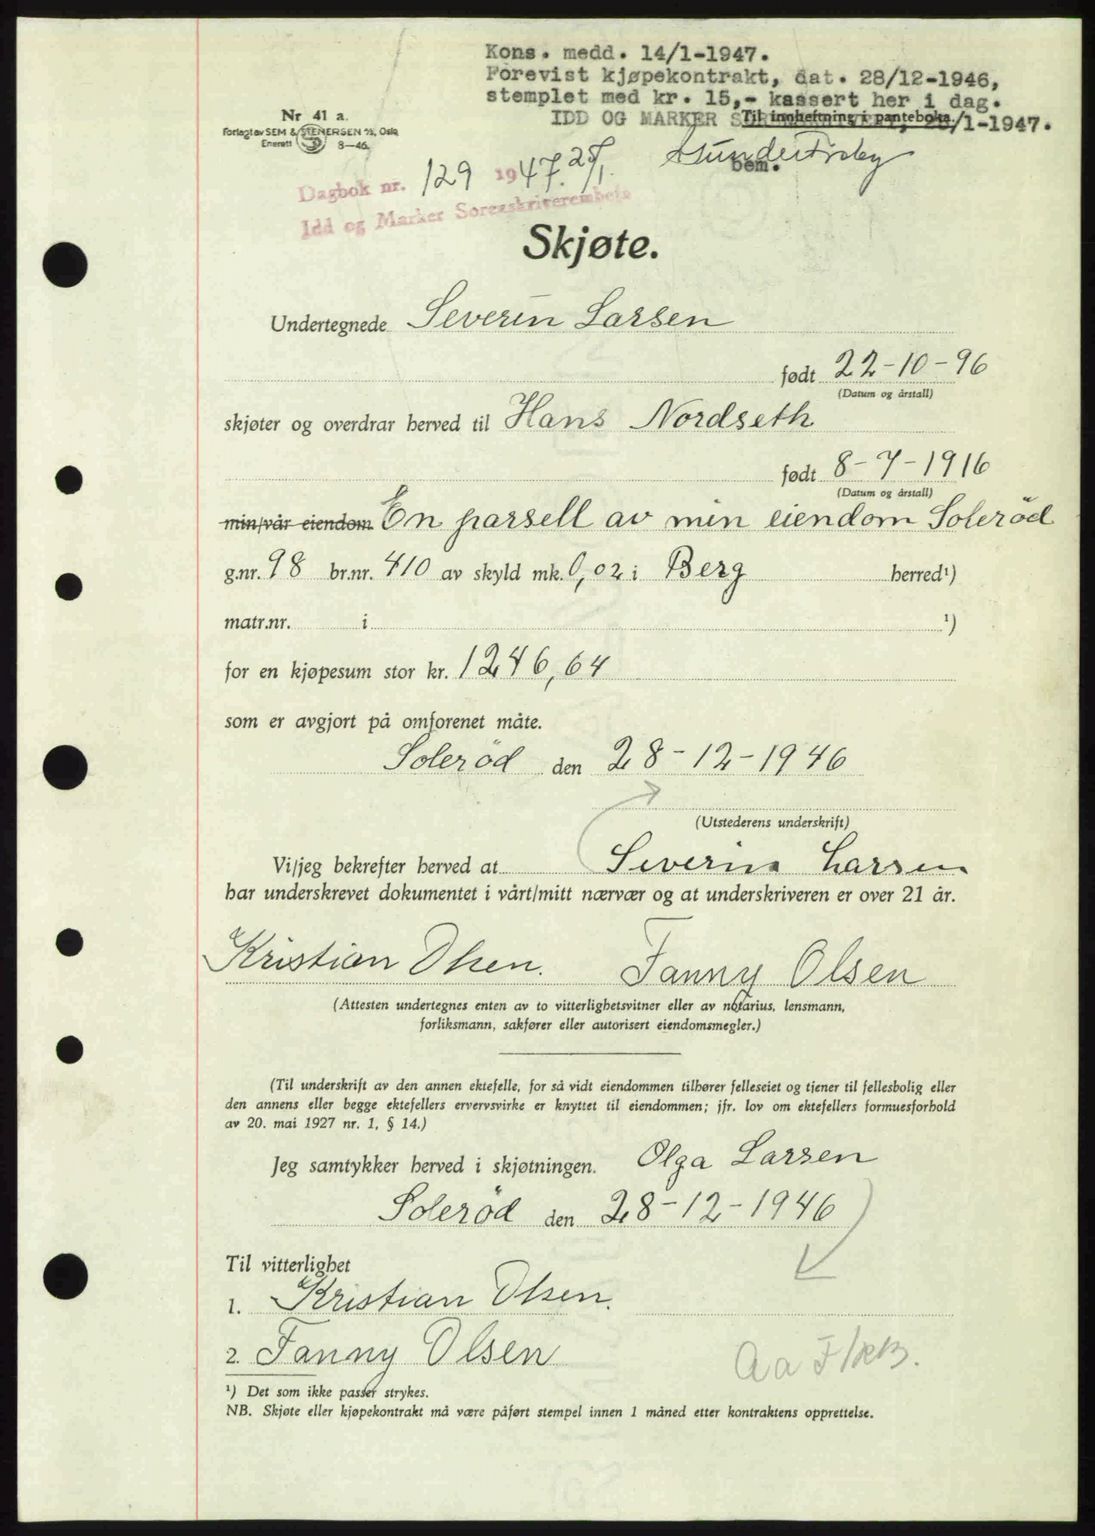 Kons. medd. 14/1-1947.
Forevist kjøpekontrakt, dat. 28/12-1946,
stemplet med kr. 15,- kassert her i dag.
IDD OG MARKER /1-1947.
Til innheftning i panteboka.
bem.
Nr 41 a.
Forlagt av SEM & STENERSEN A/S, Oslo
Enerett 8-46
Dagbok nr. 129 1947. 25/1.
Idd og Marker Sorenskriverembete
Skjøte.
Undertegnede Severin Larsen
født 22-10-96
(Datum og årstall)
skjøter og overdrar herved til Hans Nordseth
født 8-7-1916
(Datum og årstall)
min/vår eiendom En parsell av min eiendom Solerød
g.nr. 98 br.nr. 410 av skyld mk. 0,02 i Berg herred¹)
matr.nr. i ¹)
for en kjøpesum stor kr. 1246,64
som er avgjort på omforenet måte.
Solerød den 28-12-1946
(Utstederens underskrift)
Vi/jeg bekrefter herved at Severin Larsen
har underskrevet dokumentet i vårt/mitt nærvær og at underskriveren er over 21 år.
Kristian Olsen. Fanny Olsen
(Attesten undertegnes enten av to vitterlighetsvitner eller av notarius, lensmann,
forliksmann, sakfører eller autorisert eiendomsmegler.)
(Til underskrift av den annen ektefelle, for så vidt eiendommen tilhører felleseiet og tjener til fellesbolig eller
den annens eller begge ektefellers ervervsvirke er knyttet til eiendommen; jfr. lov om ektefellers formuesforhold
av 20. mai 1927 nr. 1, § 14.)
Jeg samtykker herved i skjøtningen. Olga Larsen
Solerød den 28-12-1946
Til vitterlighet
1. Kristian Olsen.
2. Fanny Olsen
¹) Det som ikke passer strykes.
NB. Skjøte eller kjøpekontrakt må være påført stempel innen 1 måned etter kontraktens opprettelse.